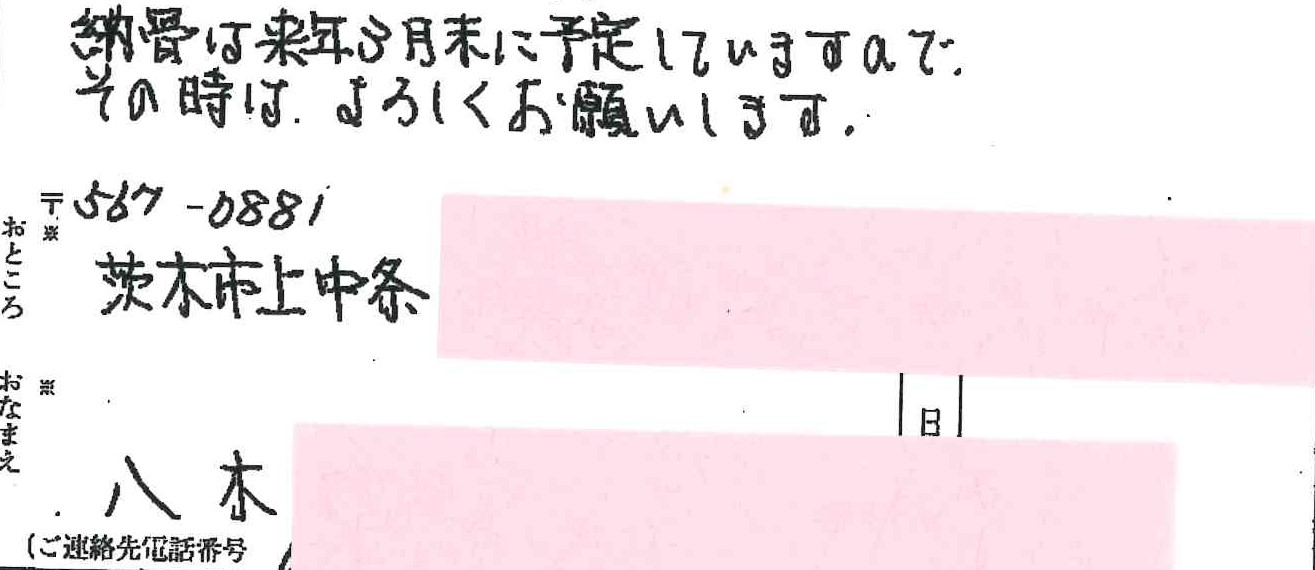 納骨は来年3月末に予定していますので.
その時は.よろしくお願いします.
〒567-0881
※
おところ
茨木市上中条
日
※
おなまえ
八木
(ご連絡先電話番号